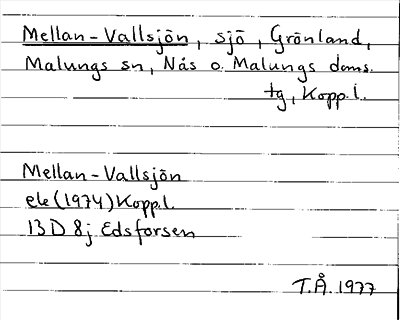 Mellan-Vallsjön, sjö, Grönland,
Malungs sn, Nås o. Malungs doms.
tg, Kopp.l.
Mellan-Vallsjön
ek (1974) Kopp.l.
13 D 8j Edsforsen
T.Å. 1977